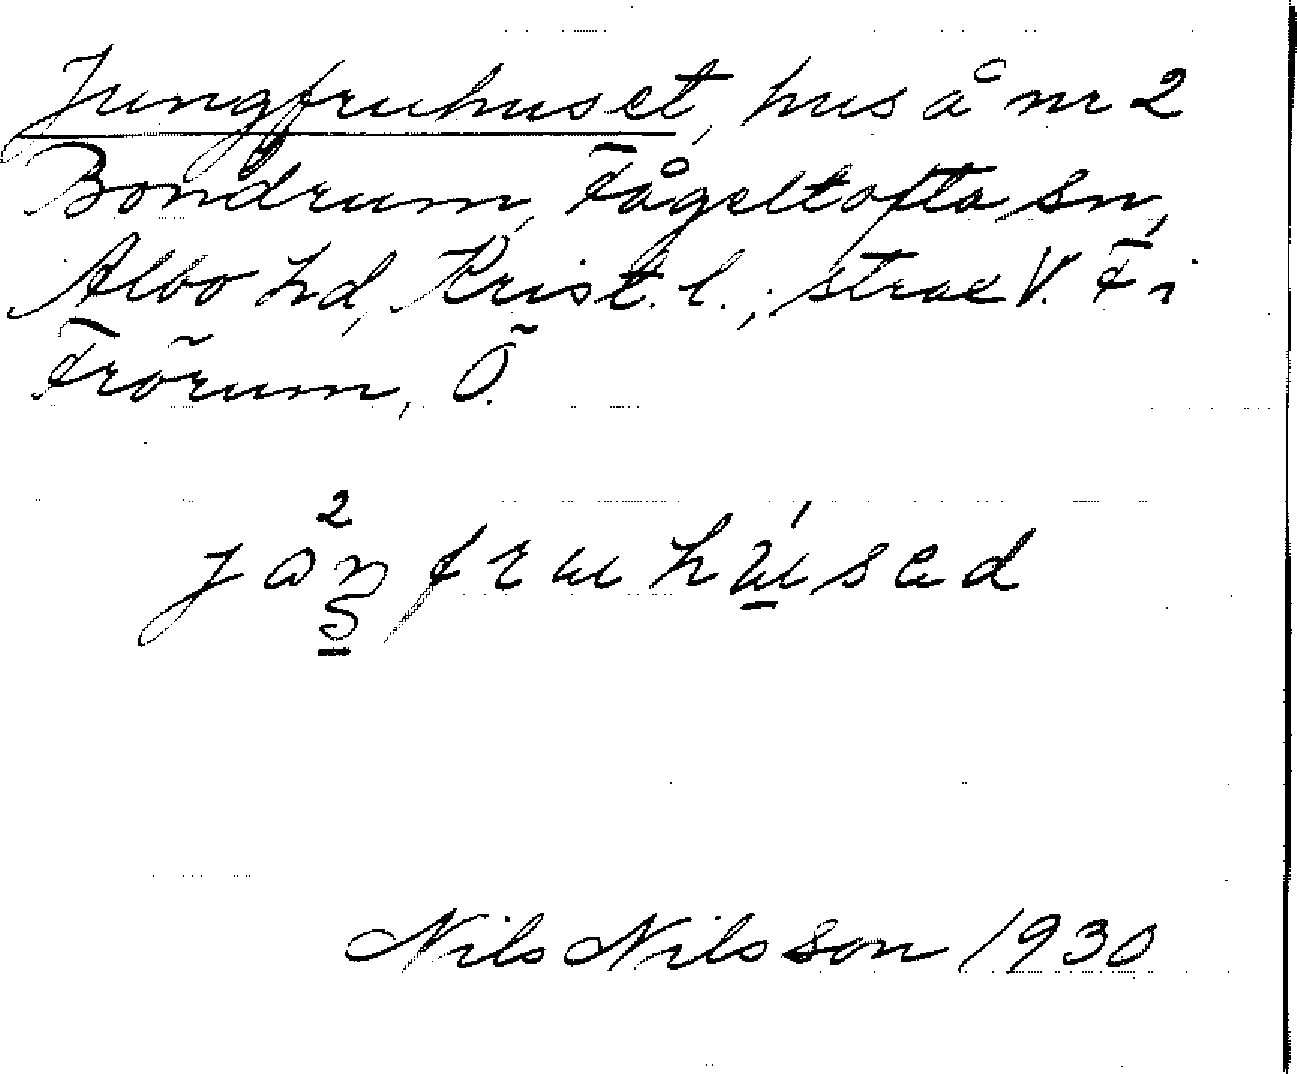 Jungfruhuset, hus å nr 2
Bondrum, Fågeltofta sn,
Albo hd, Krist. l.; strax V. F i
Frörum, Ö.
Nils Nilsson 1930